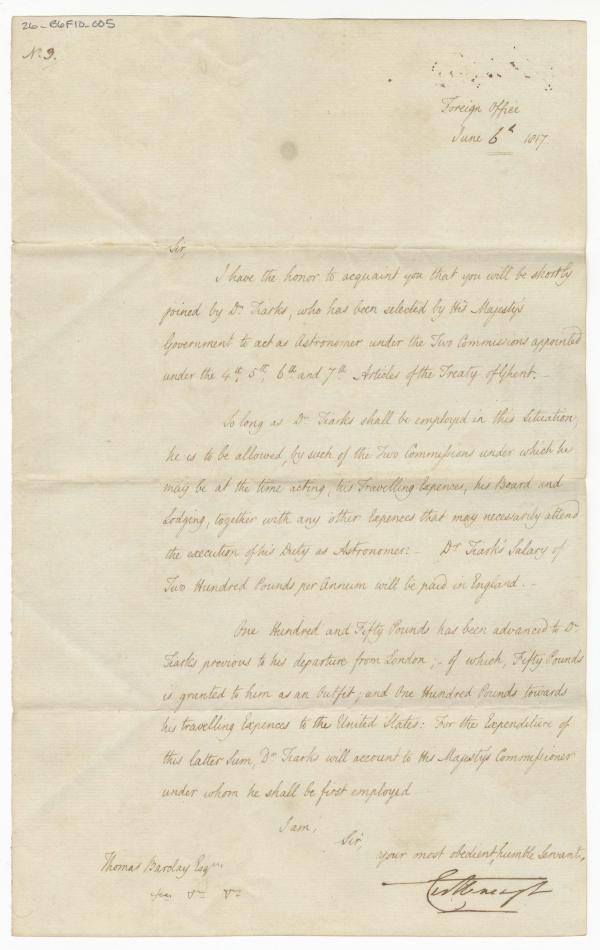 26-B6F10-005
No. 9.
Foreign Office
June 6th 1817.
Sir,
I have the honor to acquaint you that you will be shortly
joined by Dr. Tiarks, who has been selected by His Majesty's
Government to act as Astronomer under the Two Commissions appointed
under the 4th, 5th, 6th and 7th Articles of the Treaty of Ghent. –
So long as Dr. Tiarks shall be employed in this Situation,
he is to be allowed, by such of the Two Commissions under which he
may be at the time acting, his Travelling Expences, his Board and
Lodging, together with any other Expences that may necessarily attend
the execution of his Duty as Astronomer: – Dr. Tiark's Salary of
Two Hundred Pounds per Annum will be paid in England. –
One Hundred and Fifty Pounds has been advanced to Dr.
Tiarks previous to his departure from London; – of which, Fifty Pounds
is granted to him as an Outfit; and One Hundred Pounds towards
his travelling Expences to the United States: For the Expenditure of
this latter Sum, Dr. Tiarks will account to His Majesty's Commissioner
under whom he shall be first employed
I am,
Sir,
your most obedient, humble Servant,
Thomas Barclay Esqre
&c &c &c
Castlereagh